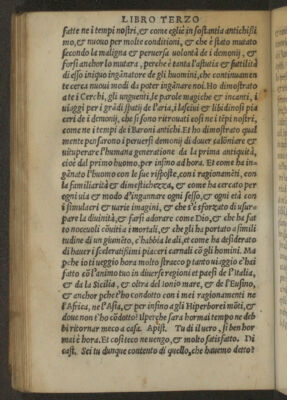 LIBRO TERZO
fatte ne i tempi nostri, & come eglie in sostantia antichissi
mo, & nuouo per molte conditioni, & che è stato mutato
secondo la maligna & peruersa volontà de i demonij, &
forsi anchor lo mutara, perche è tanta l'astutia & sottilità
di esso iniquo ingānatore de gli huomini, che continuamen
te cerca nuoui modi da poter ingānare noi. Ho dimostrato
a te i Cerchi, gli unguenti, le parole magiche & incanti, i
uiaggi per i grādi spatij de l'aria, i lasciui & libidinosi pia
ceri de i demonij, che si sono ritrouati così ne i tēpi nostri,
come ne i tempi de i Baroni antichi. Et ho dimostrato qual
mente pensarono i peruersi demonij di douer calōniare &
uituperare l'humana generatione da la prima antiquità,
cioè dal primo huomo, per insino ad hora. Et come ha in-
gānato l'huomo con le sue risposte, con i ragionamēti, con
la familiarità & dimestichezza, & come ha cercato per
ogni uia & modo d'ingannare ogni sesso, & ogni età con
i simulacri & uarie imagini, & che s'è sforzato di usur-
pare la diuinità, & farsi adorare come Dio, & che ha fat
to noceuoli cōuitia i mortali, & che gli ha portato a simili
tudine di un giumēto, c'habbia le ali, et come ha desiderato
di hauer i sceleratissimi piaceri carnali cō gli homini. Ma
pche io ti ueggio hora molto stracco p tanto uiaggio c'hai
fatto cō l'animo tuo in diuerse regioni et paesi de l'Italia,
& da la Sicilia, & oltra del Ionio mare, & de l'Eusino,
& anchor pche t'ho condotto con i mei ragionamenti ne
l'Africa, ne l'Asia, & per insino a gli Hiperborei mōti, &
doue non t'ho cōdotto? Vperche sara hormai tempo ne deb
bi ritornar meco a casa. Apist. Tu di il uero, si ben hor
mai è hora. Et cosi teco ne uengo, & molto satisfatto. Di
cast. Sei tu dunque contento di quello, che hauemo detto?